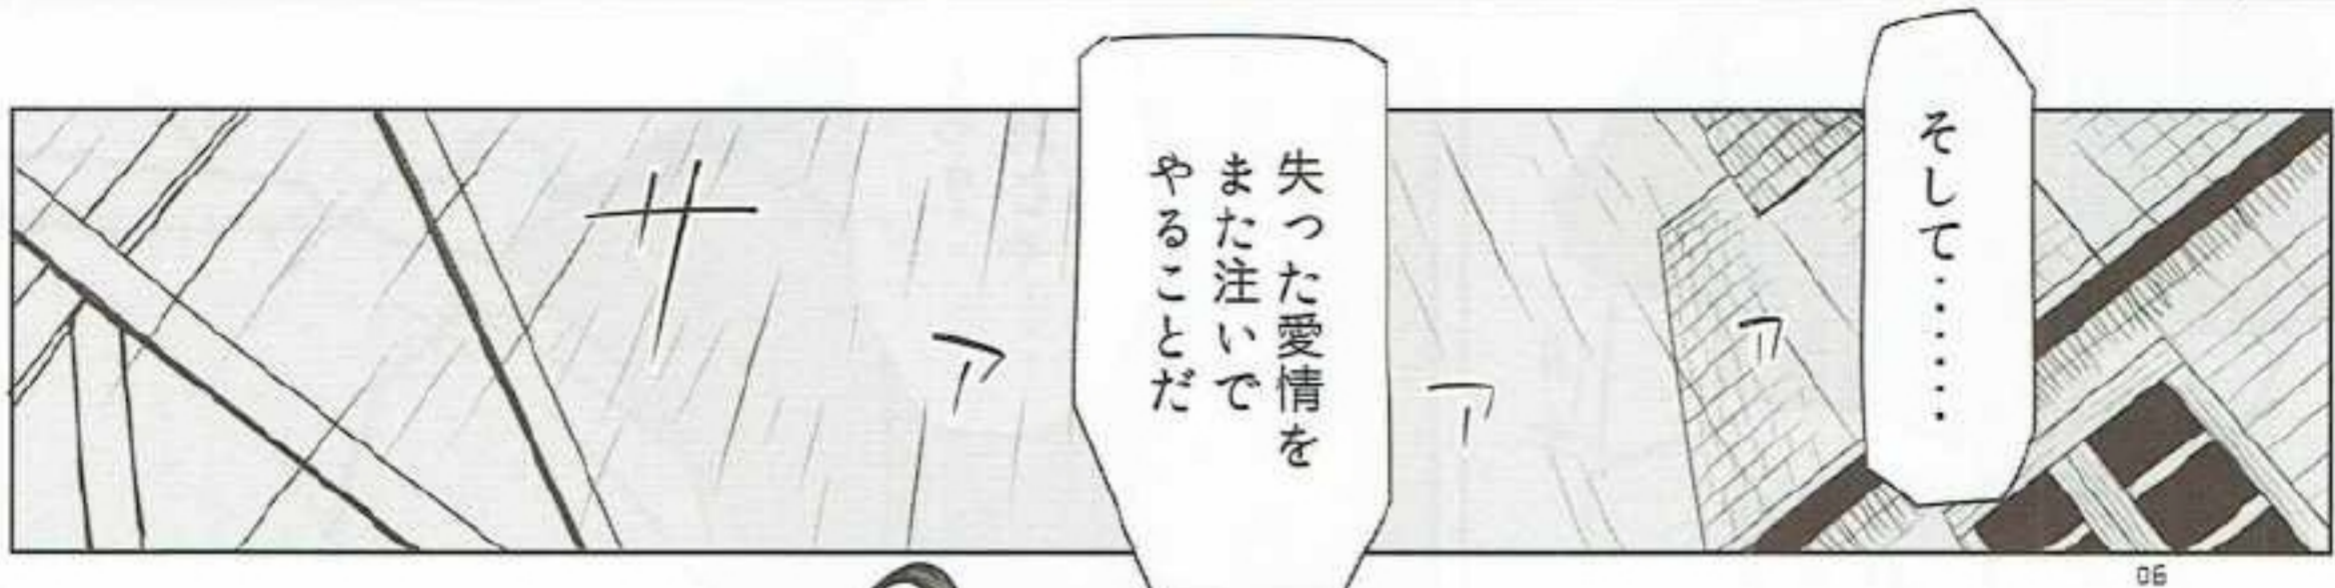 そして・・・・・・
失った愛情を
また注いで
やることだ
ザァァァ
06